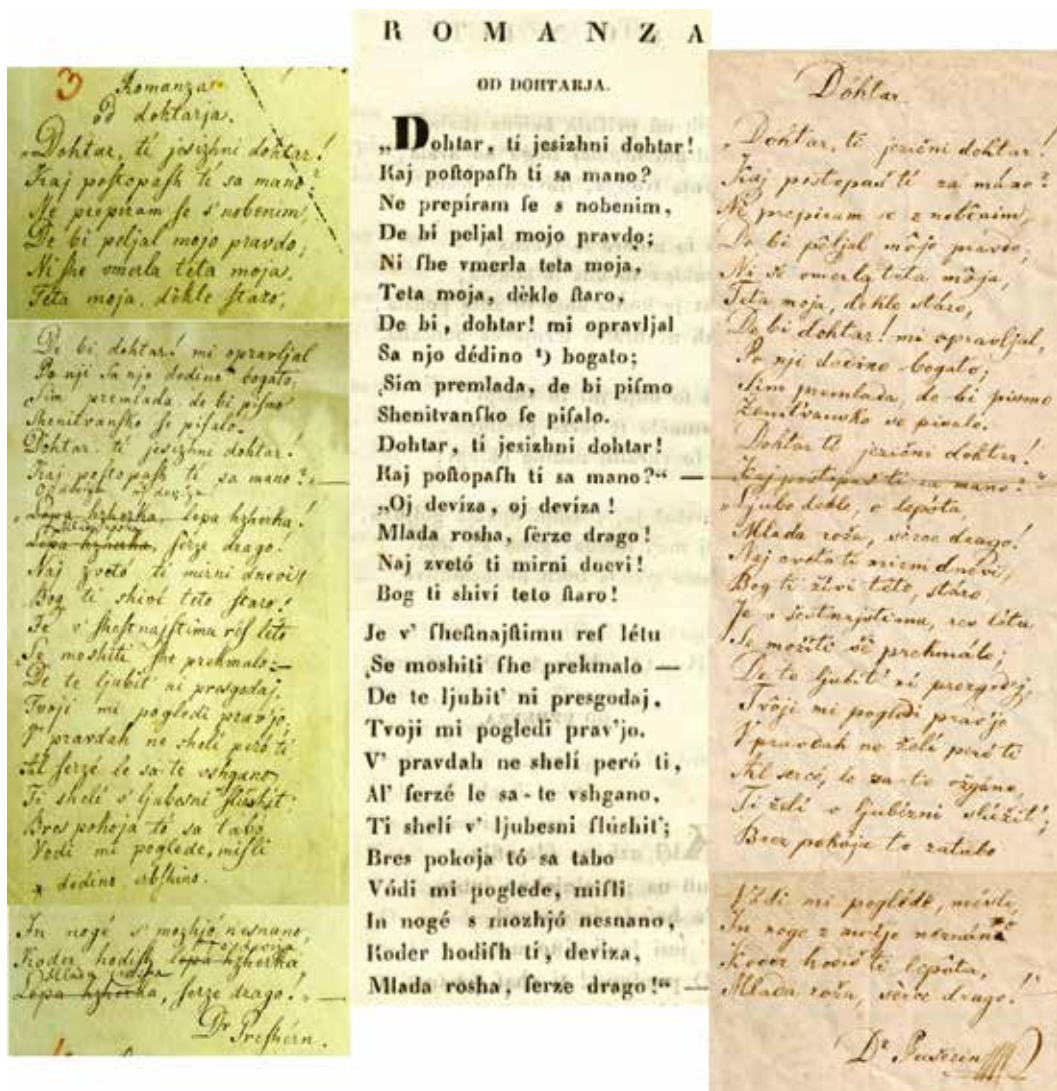 3
Romanza
od dohtarja.
„Dohtar, ti jesizhni dohtar!
Kaj poſtopaſh ti sa mano?
Ne prepiram ſe s' nobenim,
De bi peljal mojo pravdo;
Ni ſhe vmerla teta moja,
Teta moja, dèkle ſtaro,
De bi dohtar! mi opravljal
Po nji Sa njo dedino* bogato;
Sim premlada, de bi piſmo
Shenitvanſko ſe piſalo.
Dohtar, ti jesizhni dohtar!
Kaj poſtopaſh ti sa mano? —
Oj deviza, oj deviza!
„Lepa hzherka, lepa hzherka!
Mlada rosha
Lepa hzherka, ſerze drago!
Naj zvetó ti mirni dnevi!
Bog ti shiví teto ſtaro!
Je v' ſheſtnajſtimu reſ léto
Se moshiti ſhe prekmalo —
De te ljubit' ni presgodaj,
Tvoji mi pogledi prav'jo,
V' pravdah ne shelí peró ti
Al ſerzé le sa-te vshgano,
Ti shelí v' ljubesni ſlúshit'
Bres pokoja tó sa tabo
Vodi mi poglede, miſli
* dedino
In nogé s' mozhjó nesnano,
Koder hodiſh lepa hzherka
Mlada
Lepa hzherka, ſerze drago! —
Dr Preſhérn.
ROMANZA
OD DOHTARJA.
„Dohtar, tí jesizhni dohtar!
Kaj poſtopaſh ti sa mano?
Ne prepíram ſe s nobenim,
De bi peljal mojo pravdo;
Ni ſhe vmerla teta moja,
Teta moja, dèkle ſtaro,
De bi, dohtar! mi opravljal
Sa njo dédino ¹) bogato;
Sim premlada, de bi piſmo
Shenitvanſko ſe piſalo.
Dohtar, tí jesizhni dohtar!
Kaj poſtopaſh ti sa mano?“ —
„Oj devíza, oj devíza!
Mlada rosha, ſerze drago!
Naj zvetó ti mirni dnevi!
Bog ti shiví teto ſtaro!
Je v' ſheſtnajſtimu reſ létu
Se moshiti ſhe prekmalo —
De te ljubit' ni presgodaj,
Tvoji mi pogledi prav'jo.
V' pravdah ne shelí peró ti,
Al' ſerzé le sa-te vshgano,
Ti shelí v' ljubesni ſlúshit';
Bres pokoja tó sa tabo
Vódi mi poglede, miſli
In nogé s mozhjó nesnano,
Koder hodiſh tí, devíza,
Mlada rosha, ſerze drago!“ —
Dóhtar.
„Dohtar, ti jezični dohtar!
Kaj postopaš ti za máno?
Ne prepiram se z nobénim,
De bi pêljal môjo pravdo;
Ni še vmerla têta môja,
Teta moja, dekle stáro,
De bi dohtar! mi opravljal,
Po nji dedino bogato;
Sim premlada, de bi pismo
Ženitvansko se pisalo.
Dohtar ti jezični dohtar!
Kaj postopaš ti za mano?“
„Ljubo dekle, o lepóta
Mlada roža, sérce drago!
Naj cveto ti mirni dnévi,
Bog ti živi teto, stáro,
Je v šestnajstimu, res létu
Se možiti še prekmálo;
De te ljubit' ni prezgodaj,
Tvôji mi pogledi prav'jo
V pravdah ne želí peró ti
Al sercé, le za-te vžgáno,
Ti želí v ljubézni slúžit';
Brez pokoja to za tabo
Vódi mi poglede, misli,
In noge z močjo neznáno
Koder hodiš ti lepóta,
Mlada roža, sérce drago!“
Dr Prešérin